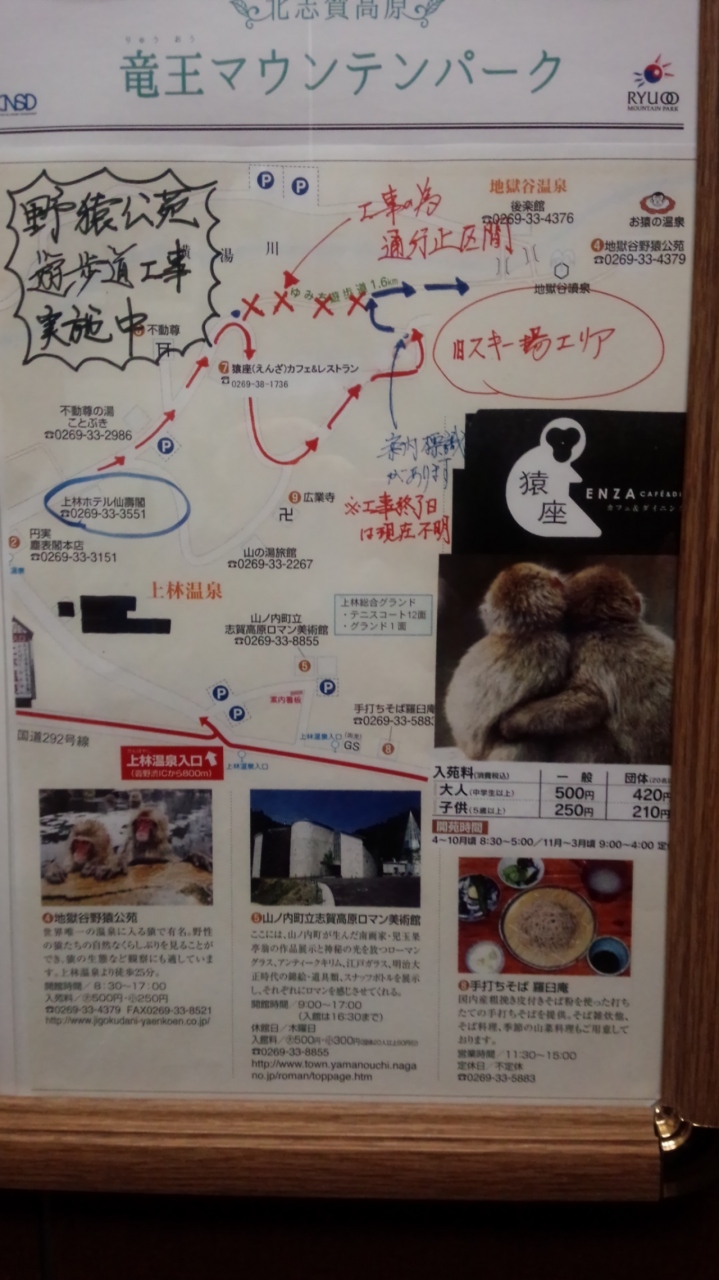 北志賀高原
りゅう おう
竜王マウンテンパーク
NSD
RYUOO
MOUNTAIN PARK
野猿公苑
遊歩道工事
実施中
P
P
工事の為
通行止区間
地獄谷温泉
後楽館
☎0269-33-4376
お猿の温泉
④地獄谷野猿公苑
☎0269-33-4379
横 湯 川
遊歩道 1.6km
地獄谷噴泉
旧スキー場エリア
不動尊
⑦猿座(えんざ)カフェ&レストラン
☎0269-38-1736
不動尊の湯
ことぶき
☎0269-33-2986
P
案内標識
があります
※工事終了日
は現在不明
上林ホテル仙壽閣
☎0269-33-3551
⑨広業寺
卍
円実
塵表閣本店
☎0269-33-3151
山の湯旅館
☎0269-33-2267
猿座
ENZA CAFÉ&DI
カフェ&ダイニン
上林温泉
山ノ内町立
志賀高原ロマン美術館
☎0269-33-8855
上林総合グランド
・テニスコート12面
・グランド1面
⑤
P
P
P
案内看板
手打ちそば羅臼庵
☎0269-33-5883
上林温泉入口
GS
⑧
国道292号線
上林温泉入口
上林温泉入口
入苑料(消費税込) 一般 団体
大人(中学生以上) 500円 420円
子供(5歳以上) 250円 210円
開苑時間
4~10月頃 8:30~5:00/11月~3月頃 9:00~4:00
④地獄谷野猿公苑
世界唯一の温泉に入る猿で有名。野性
の猿たちの自然なくらしぶりを見ることが
でき、猿の生態など観察にも適していま
す。上林温泉より徒歩25分。
開館時間/8:30~17:00
入苑料/㊅500円・㊙250円
☎0269-33-4379 FAX0269-33-8521
http://www.jigokudani-yaenkoen.co.jp/
⑤山ノ内町立志賀高原ロマン美術館
ここには、山ノ内町が生んだ南画家・児玉果
亭翁の作品展示と神秘の光を放つローマン
グラス、アンティークキリム、江戸ガラス、明治大
正時代の錦絵・道具類、スナッフボトルを展示
し、それぞれにロマンを感じさせてくれる。
開館時間/9:00~17:00
(入館は16:30まで)
休館日/木曜日
☎0269-33-8855
http://www.town.yamanouchi.naga
no.jp/roman/toppage.htm
⑧手打ちそば 羅臼庵
国内産粗挽き度付きそば粉を使った打ち
たての手打ちそばを提供。そば雑炊飯、
そば料理、季節の山菜料理もご用意して
おります。
営業時間/11:30~15:00
定休日/不定休
☎0269-33-5883